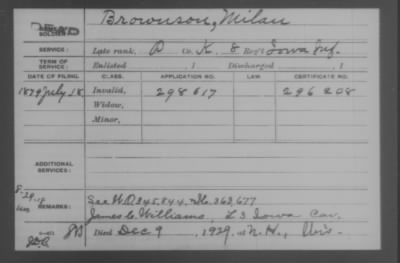 DEAD
NAME OF SOLDIER: Brownson, Milan
SERVICE: Late rank, P Co. K, 8 Reg't Iowa Inf.
TERM OF SERVICE: Enlisted , 1 Discharged , 1
DATE OF FILING. CLASS. APPLICATION NO. LAW. CERTIFICATE NO.
1879 July 18 Invalid, 298617 296208
Widow,
Minor,
ADDITIONAL SERVICES:
REMARKS: See W.O. 345,844, 363,677
James C. Williams, L 3 Iowa Cav.
Died Dec 9, 1929, at N.H., Wis.